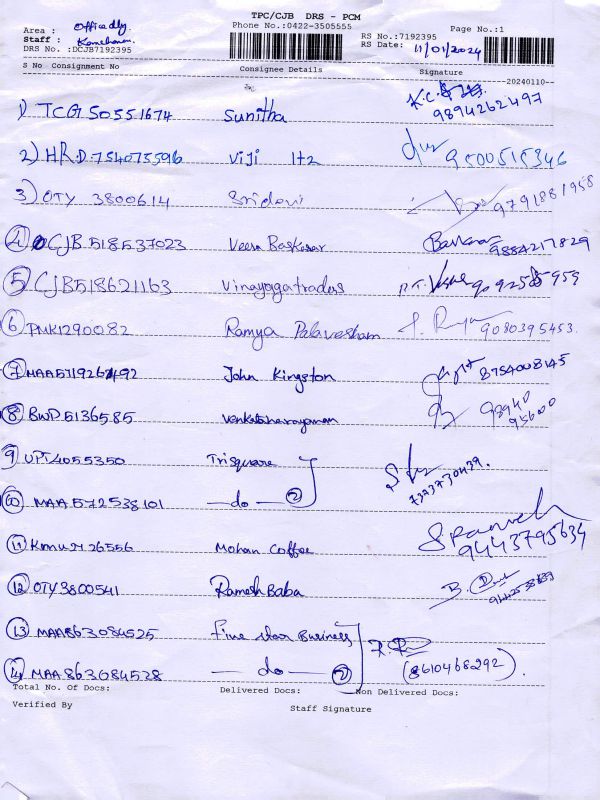 TPC/CJB DRS - PCM
Area :
Phone No.:0422-3505555
Page No.:1
Staff :
RS No.:7192395
DRS No. :DCJB7192395
RS Date: 11/01/2024
S No Consignment No Consignee Details Signature
20240110--
1) TCG50551674 Sunitha K.C. 9894262497
2) HRD754075596 Viji 1+2 9500515346
3) OTY 3800614 Sridevi 9791881958
4 CJB518537023 Veera Baskarar Baskarar 9884217829
5 CJB518621163 Vinayagatraders
6 PMK1290082 Ramya Palavesham 9080395453.
7 MAA5719267492 John Kingston 8754008145
8 BWD5136585 Venkatanarayanan 98940 95600
9 UPT4055350 Trisquare 7293730439.
10 MAA572538101 —do— 2
11 26556 Mohan Coffee 9443795634
12 OTY3800541 Ramesh Baba B.
13 MAA863084525 Fine star Business
14 MAA863084528 —do— 2 (8610468292).
Total No. Of Docs: Delivered Docs: Non Delivered Docs:
Verified By Staff Signature